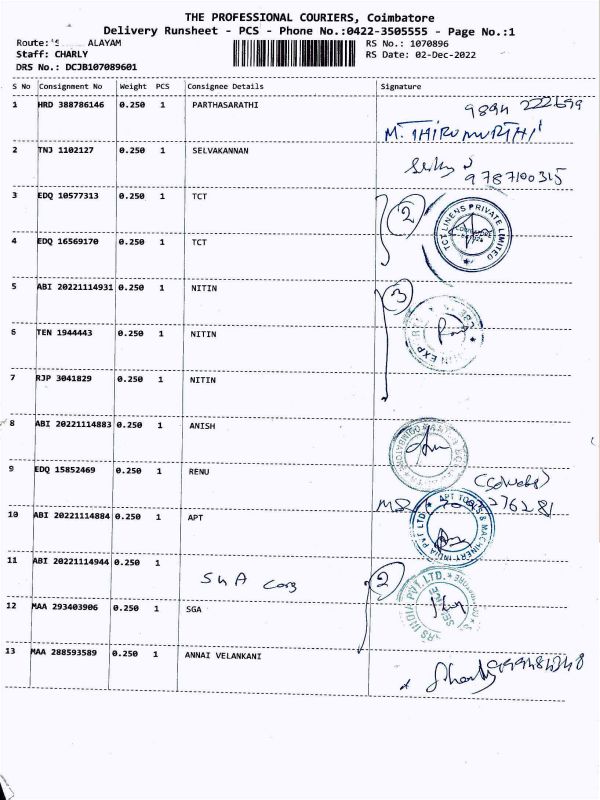 THE PROFESSIONAL COURIERS, Coimbatore
Delivery Runsheet - PCS - Phone No.:0422-3505555 - Page No.:1
Route: ALAYAM RS No.: 1070896
Staff: CHARLY RS Date: 02-Dec-2022
DRS No.: DCJB107089601
S No Consignment No Weight PCS Consignee Details Signature
1 HRD 388786146 0.250 1 PARTHASARATHI
M. THIRUMURTHI
2 TNJ 1102127 0.250 1 SELVAKANNAN
9787100315
3 EDQ 10577313 0.250 1 TCT 2 TCT LINENS PRIVATE LIMITED
4 EDQ 16569170 0.250 1 TCT
5 ABI 20221114931 0.250 1 NITIN 3
6 TEN 1944443 0.250 1 NITIN
7 RJP 3041829 0.250 1 NITIN
8 ABI 20221114883 0.250 1 ANISH
9 EDQ 15852469 0.250 1 RENU
10 ABI 20221114884 0.250 1 APT APT TOOLS & MACHINERY INDIA PVT LTD
11 ABI 20221114944 0.250 1 2
12 MAA 293403906 0.250 1 SGA INDIA PVT. LTD.
13 MAA 288593589 0.250 1 ANNAI VELANKANI